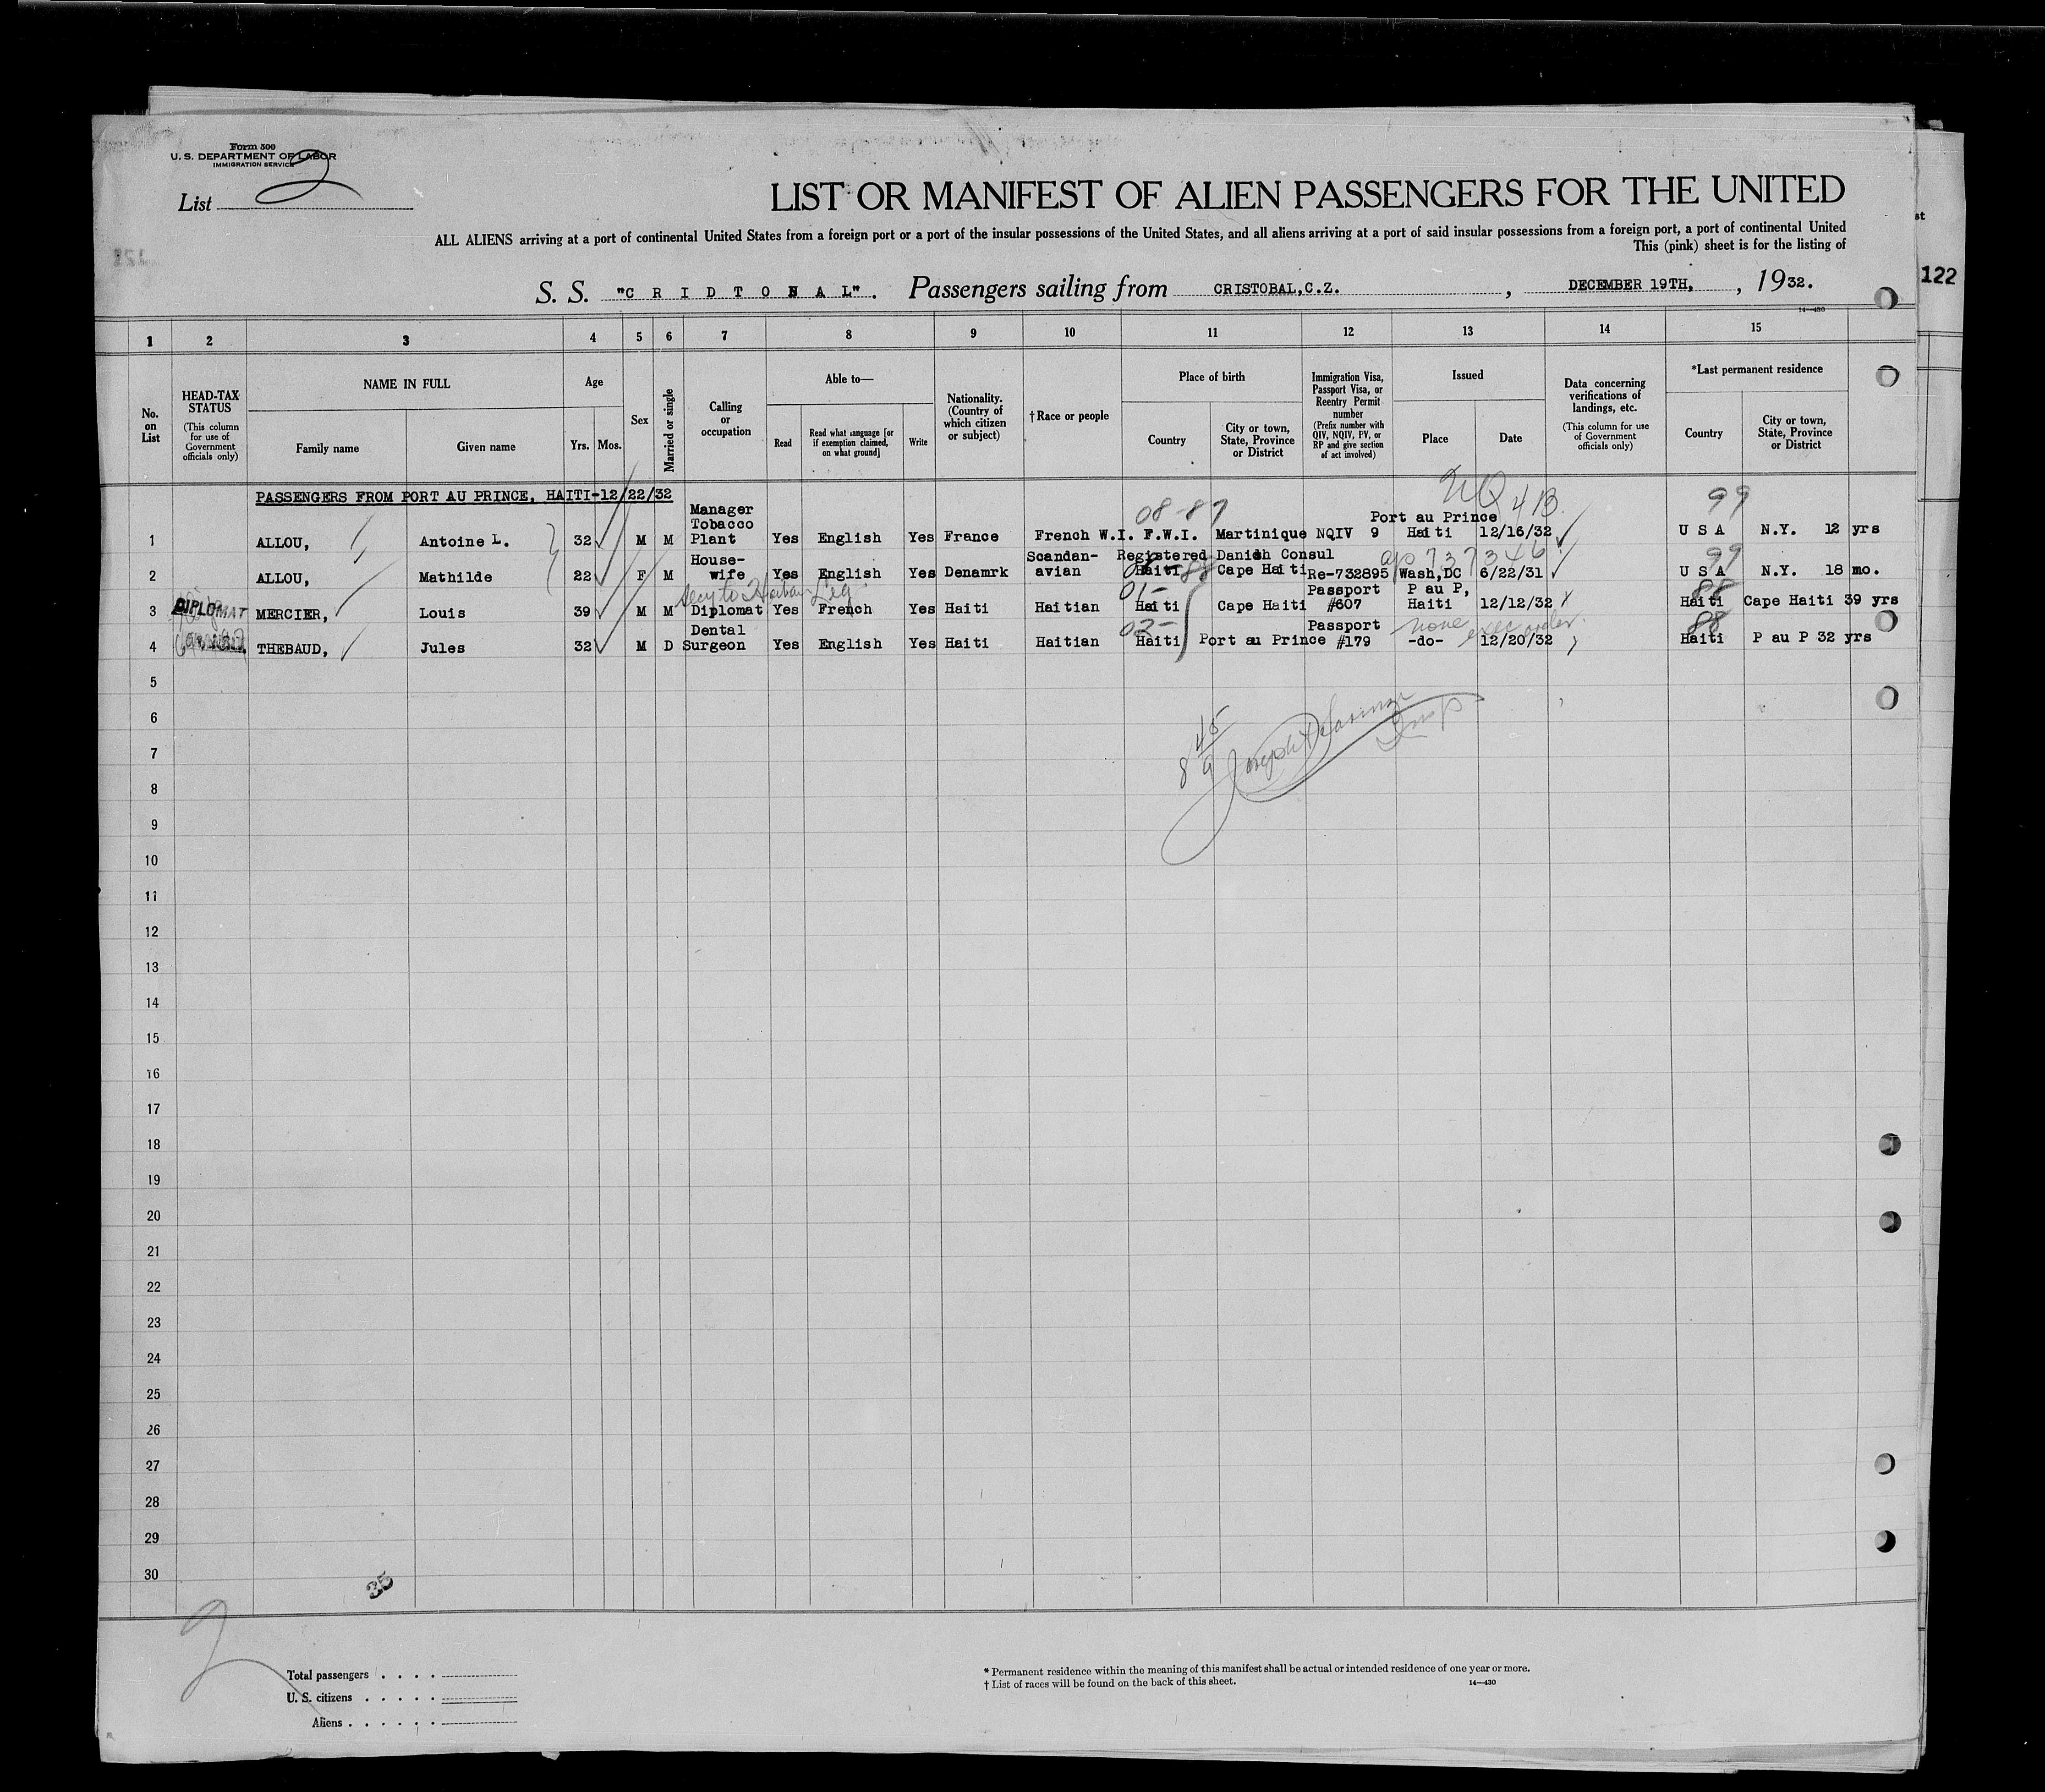 Form 500
U. S. DEPARTMENT OF LABOR
IMMIGRATION SERVICE
List 2
LIST OR MANIFEST OF ALIEN PASSENGERS FOR THE UNITED
ALL ALIENS arriving at a port of continental United States from a foreign port or a port of the insular possessions of the United States, and all aliens arriving at a port of said insular possessions from a foreign port, a port of continental United
This (pink) sheet is for the listing of
st
122
S. S. "C R I D T O N A L". Passengers sailing from CRISTOBAL,C.Z. , DECEMBER 19TH, , 1932.
14—430
1 2 3 4 5 6 7 8 9 10 11 12 13 14 15
No. on List
HEAD-TAX STATUS
(This column for use of Government officials only)
NAME IN FULL
Family name Given name
Age
Yrs. Mos.
Sex
Married or single
Calling or occupation
Able to—
Read
Read what language [or if exemption claimed, on what ground]
Write
Nationality. (Country of which citizen or subject)
† Race or people
Place of birth
Country
City or town, State, Province or District
Immigration Visa, Passport Visa, or Reentry Permit number
(Prefix number with QIV, NQIV, PV, or RP and give section of act involved)
Issued
Place Date
Data concerning verifications of landings, etc.
(This column for use of Government officials only)
*Last permanent residence
Country
City or town, State, Province or District
PASSENGERS FROM PORT AU PRINCE, HAITI-12/22/32
NQ 4B 99
08-87
1 ALLOU, Antoine L. 32 M M Manager Tobacco Plant Yes English Yes France French W.I. F.W.I. Martinique NQIV 9 Port au Prince Haiti 12/16/32 U S A N.Y. 12 yrs
Registered Danish Consul 737346 99
2 ALLOU, Mathilde 22 F M House-wife Yes English Yes Denamrk Scandan-avian Haiti Cape Haiti Re-732895 Wash,DC 6/22/31 U S A N.Y. 18 mo.
Secy to Haitian Leg 01- 88
3 DIPLOMAT MERCIER, Louis 39 M M Diplomat Yes French Yes Haiti Haitian Haiti Cape Haiti Passport #607 P au P, Haiti 12/12/32 Haiti Cape Haiti 39 yrs
02- none exec order 88
4 THEBAUD, Jules 32 M D Dental Surgeon Yes English Yes Haiti Haitian Haiti Port au Prince Passport #179 -do- 12/20/32 Haiti P au P 32 yrs
5
6
7
8
9
10
11
12
13
14
15
16
17
18
19
20
21
22
23
24
25
26
27
28
29
30
35
2
Total passengers . . . .
U. S. citizens . . . . .
Aliens . . . . . .
* Permanent residence within the meaning of this manifest shall be actual or intended residence of one year or more.
† List of races will be found on the back of this sheet.
14—430